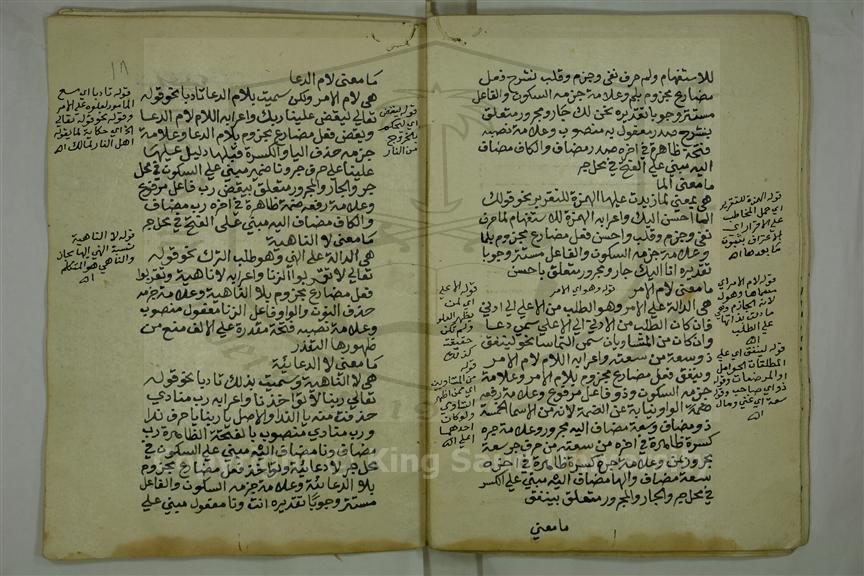 للاستفهام ولم حرف نفي وجزم وقلب نشرح فعل
مضارع مجزوم بلم وعلامة جزمه السكوت والفاعل
مستتر وجوبا تقديره نحن لك جار ومجرور متعلق
بنشرح صدر مفعول به منصوب وعلامة نصبه
فتحة ظاهرة في اخره صدر مضاف والكاف مضاف
اليه مبني على الفتح في محل جر
ما معنى ألما
هي بمعنى لما زيدت عليها الهمزة للتقرير نحو قولك
الما أحسن اليك واعرابه الهمزة للاستفهام لما حرف
نفي وجزم وقلب واحسن فعل مضارع مجزوم بلما
وعلامة جزمه السكون والفاعل مستتر وجوبا
تقديره انا اليك جار ومجرور متعلق باحسن
ما معنى لام الامر
هي الدالة على الامر وهو الطلب من الاعلى الى ادنى
فان كان الطلب من الادنى الى الاعلى سمي دعا
وان كان من المتساويان سمى التماسا نحو لينفق
ذو سعة من سعته واعرابه اللام لام الامر
وينفق فعل مضارع مجزوم بلام الامر وعلامة
جزمه السكون وذو فاعل مرفوع وعلامة رفعه
الواو نيابة عن الضمة لانه من الاسما الخمسة
ذو مضاف وسعة مضاف اليه مجرور وعلامة جره
كسرة ظاهرة في اخره من سعته من حرف جر سعة
مجرور بمن وعلامة جره كسرة ظاهرة في اخره
سعة مضاف والها مضاف اليه مبني على الكسر
في محل جر والجار والمجرور متعلق بينفق
ما معنى
قوله الهمزة للتقرير
اي حمل المخاطب
على الاقرار اي
الاعتراف بثبوت
ما بعدها اه
قوله لام الامر اي
على الطلب
اه
قوله لينفق اي على
المطلقات الحوامل
او المرضعات وقوله
ذو اي صاحب وقوله
سعة اي غنى ومال
اه
قوله وهو اي الامر
قوله الاعلى
قوله
من المتساويين
١٨
ما معنى لام الدعا
هي لام الامر ولكن سميت بلام الدعا تادبا نحو قوله
تعالى ليقض علينا ربك واعرابه اللام لام الدعا
ويقض فعل مضارع مجزوم بلام الدعا وعلامة
جزمه حذف اليا والكسرة قبلها دليل عليها
علينا على حرف جر ونا ضمير مبني على السكون في محل
جر والجار والمجرور متعلق بيقض رب فاعل مرفوع
وعلامة رفعه ضمة ظاهرة في اخره رب مضاف
والكاف مضاف اليه مبني على الفتح في محل جر
ما معنى لا الناهية
هي الدالة على النهي وهو طلب الترك نحو قوله
تعالى لا تقربوا الزنا واعرابه لا ناهية وتقربوا
فعل مضارع مجزوم بلا الناهية وعلامة جزمه
حذف النون والواو فاعل الزنا مفعول منصوب
وعلامة نصبه فتحة مقدرة على الالف منع من
ظهورها التعذر
ما معنى لا الدعائية
هي لا الناهية وسميت بذلك تادبا نحو قوله
تعالى ربنا لا تؤاخذنا واعرابه رب منادى
حذفت منه يا الندا والاصل يا ربنا يا حرف ندا
ورب منادى منصوب بالفتحة الظاهرة رب
مضاف ونا مضاف اليه مبني على السكون في
محل جر لا دعائية وتؤاخذ فعل مضارع مجزوم
بلا الدعائية وعلامة جزمه السكون والفاعل
مستتر وجوبا تقديره انت ونا مفعول مبني على
قوله تادبا اي مع
المامور لعلوه على الامر
وقوله نحو قوله تعالى
الخ اي حكاية لما يقوله
اهل النار لمالك اه
قوله ليقض
اي ليحكم
بالخروج
من النار
قوله لا الناهية
نسبة النهي اليها مجاز
والناهي هو المتكلم
اه
King Saud